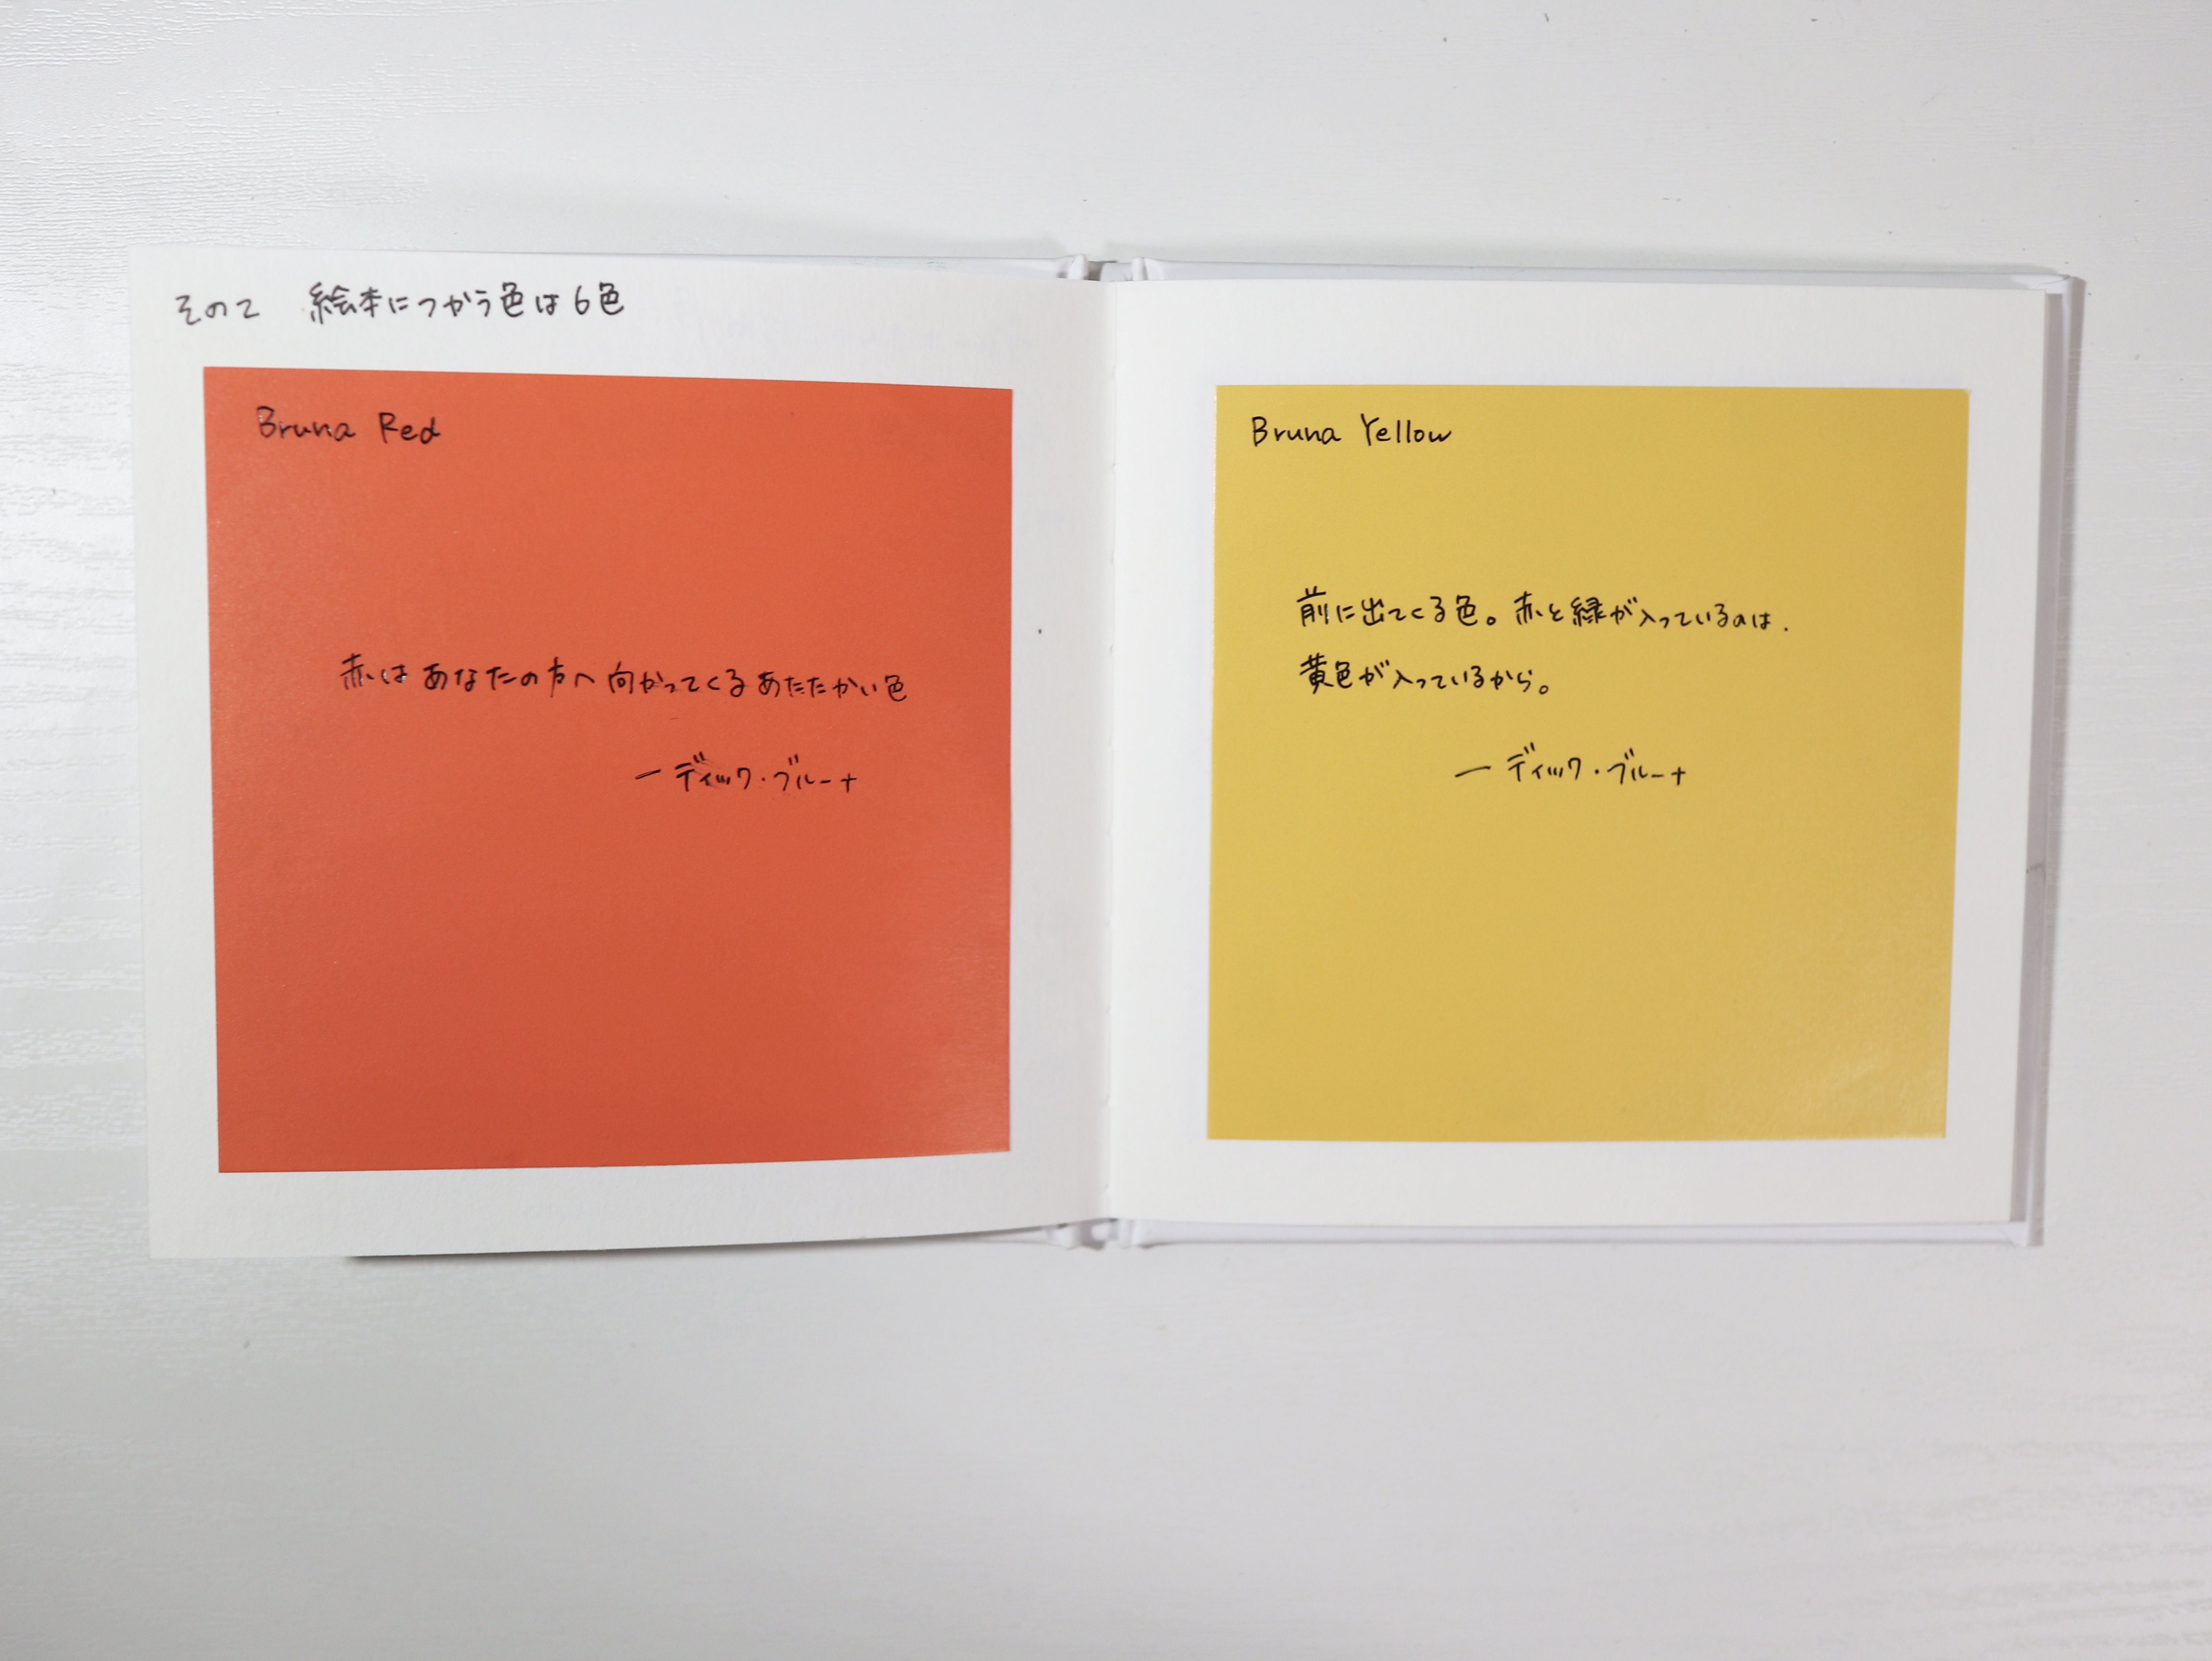 その2 絵本につかう色は6色
Bruna Red
赤はあなたの方へ向かってくるあたたかい色
ーディック・ブルーナ
Bruna Yellow
前に出てくる色。赤と緑が入っているのは.
黄色が入っているから。
ーディック・ブルーナ